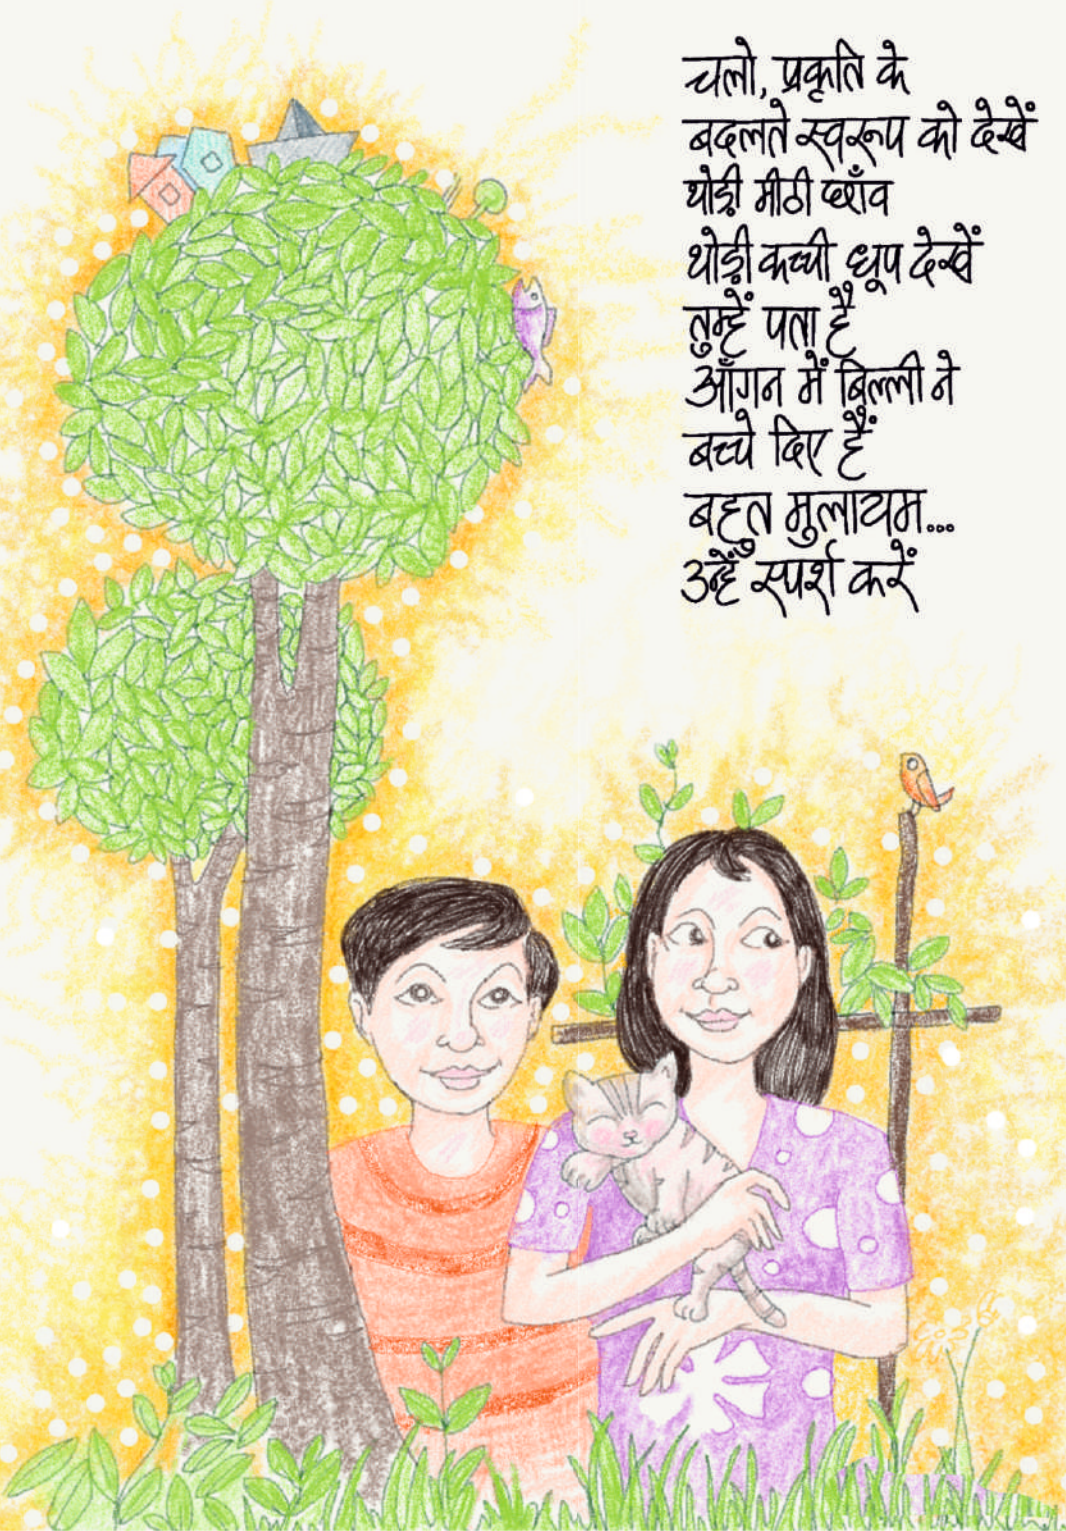 चलो, प्रकृति के
बदलते स्वरूप को देखें
थोड़ी मीठी छाँव
थोड़ी कच्ची धूप देखें
तुम्हें पता है
आँगन में बिल्ली ने
बच्चे दिए हैं
बहुत मुलायम...
उन्हें स्पर्श करें